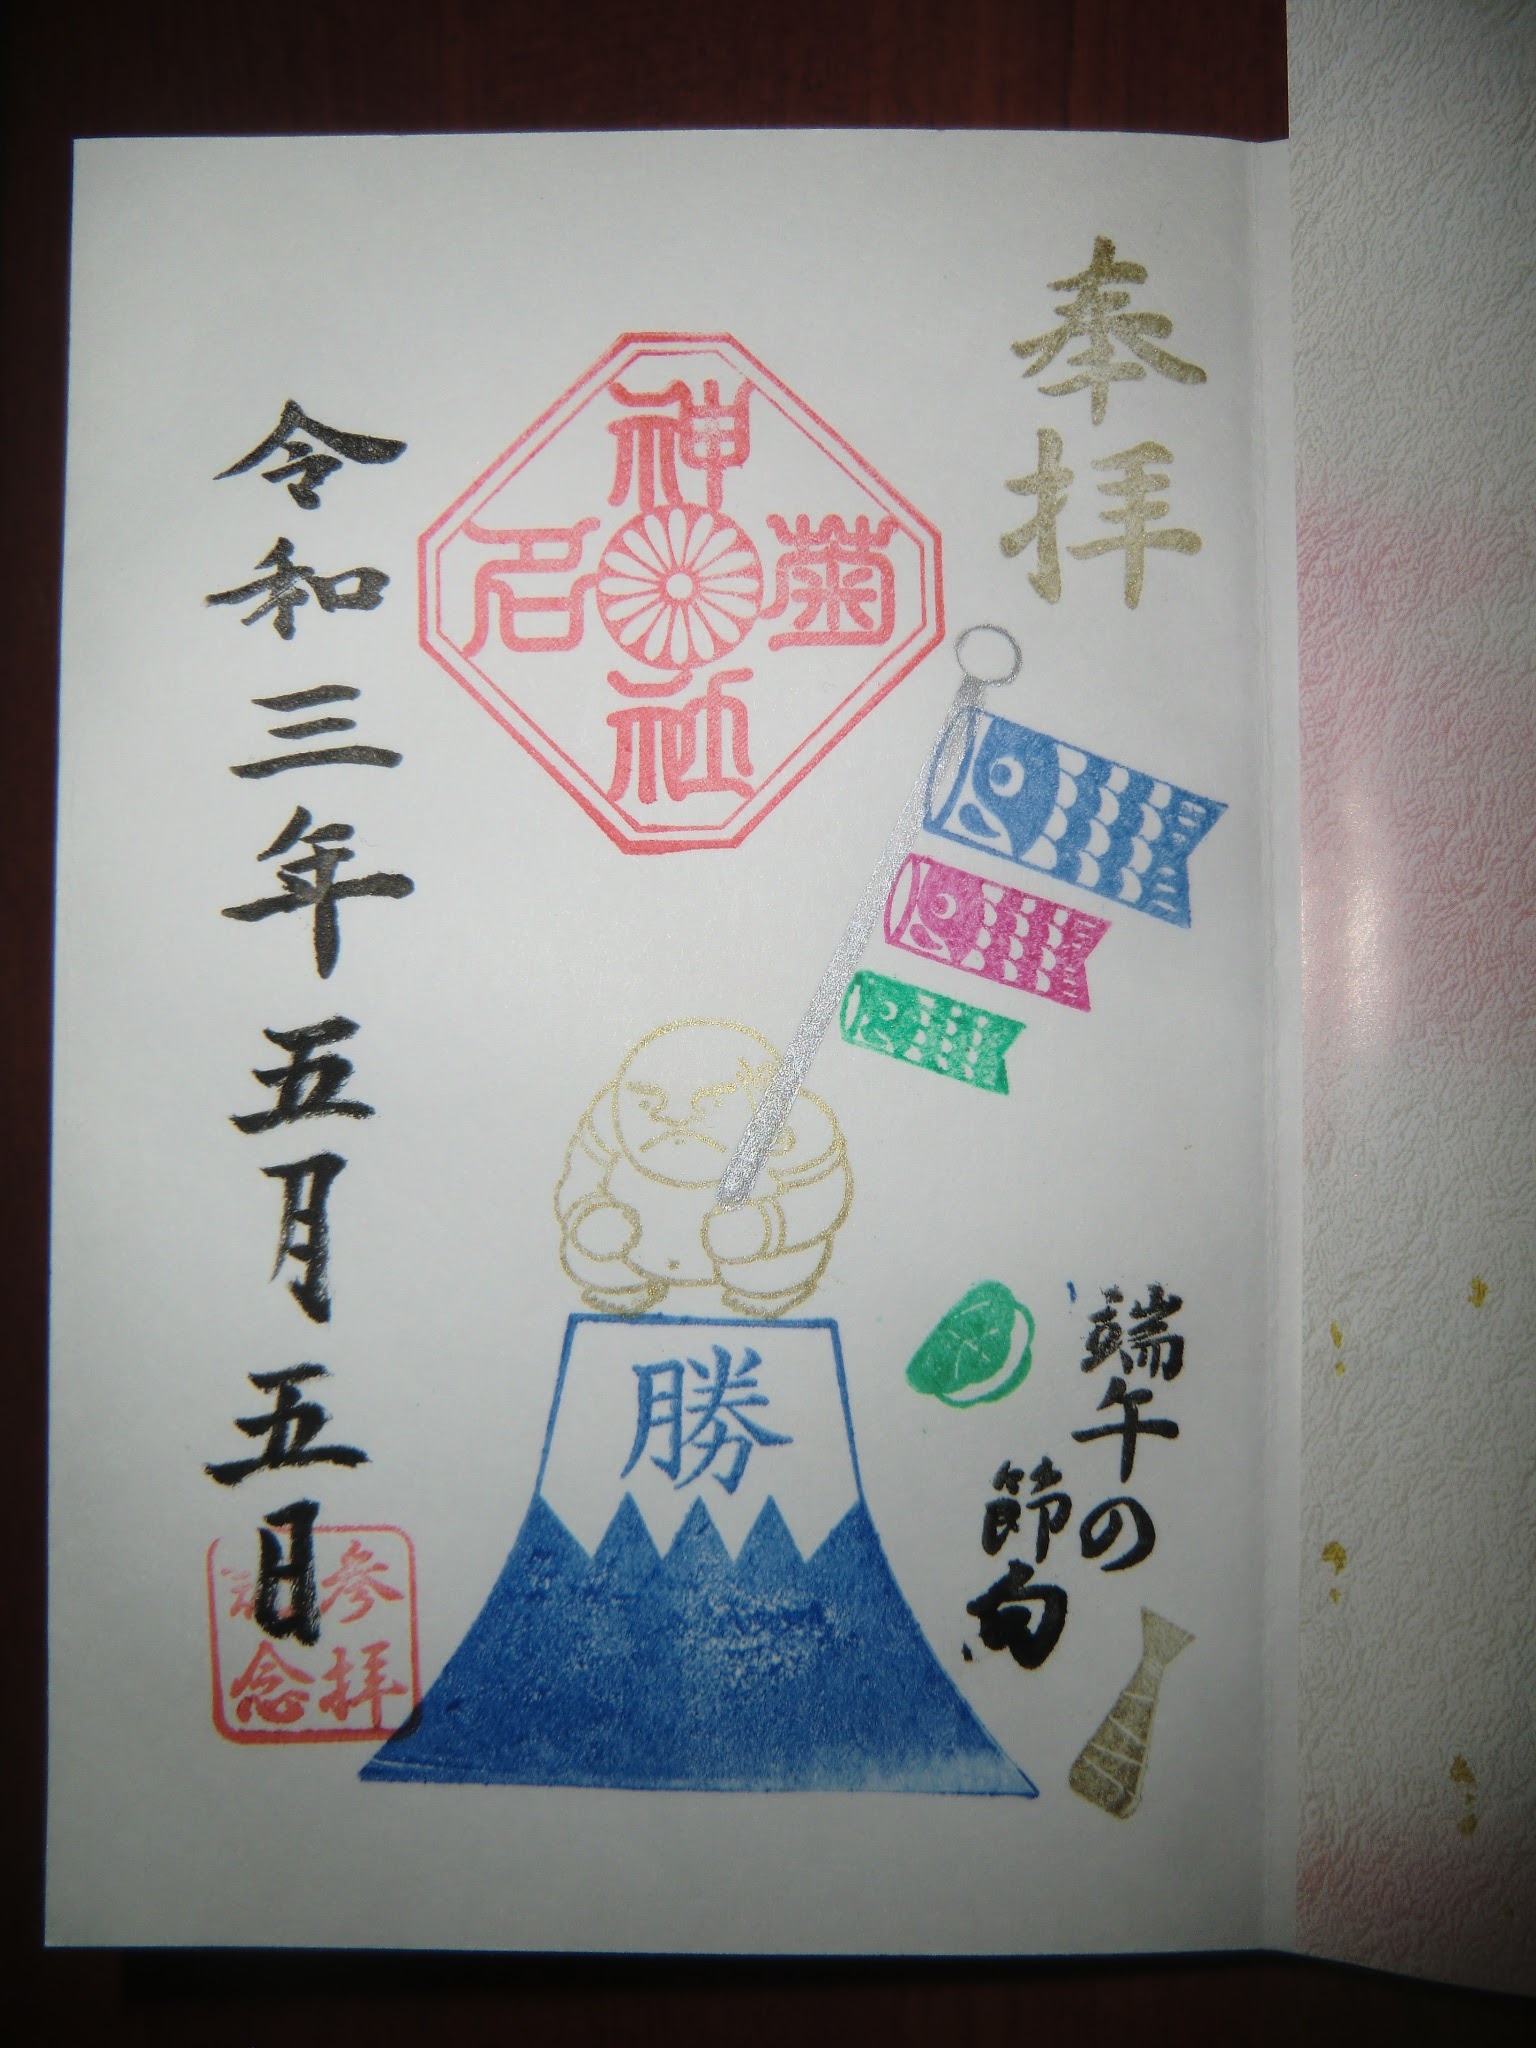 奉拝
端午の
節句
神
菊名
社
勝
参拝
記念
令和三年五月五日